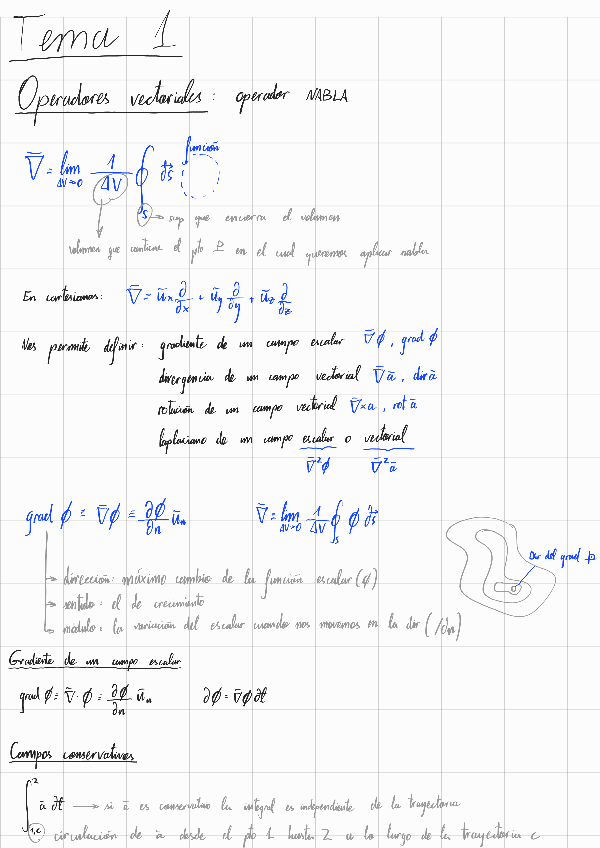 Tema 1
Operadores vectoriales: operador NABLA
∇̄ = lim ΔV→0 1/ΔV ∮ d⃗s función
S → sup que encierra el volumen
volumen que contiene el pto P en el cual queremos aplicar nabla
En cartesianas: ∇̄ = ūx ∂/∂x + ūy ∂/∂y + ūz ∂/∂z
Nos permite definir: gradiente de un campo escalar ∇̄ϕ, grad ϕ
divergencia de un campo vectorial ∇̄ā, div ā
rotación de un campo vectorial ∇̄×a, rot ā
laplaciano de un campo escalar o vectorial
∇̄²ϕ ∇̄²ā
grad ϕ ≡ ∇̄ϕ ≡ ∂ϕ/∂n ūn ∇̄ = lim ΔV→0 1/ΔV ∮s ϕ d⃗s
Dir del grad
→ dirección: máximo cambio de la función escalar (ϕ)
→ sentido: el de crecimiento
→ modulo: la variación del escalar cuando nos movemos en la dir (/∂n)
Gradiente de un campo escalar
grad ϕ ≡ ∇̄·ϕ = ∂ϕ/∂n ūn ∂ϕ = ∇̄ϕ ∂ℓ̄
Campos conservativos
∫ 1,c 2 ā ∂ℓ̄ → si ā es conservativo la integral es independiente de la trayectoria
circulación de ā desde el pto 1 hasta 2 a lo largo de la trayectoria c